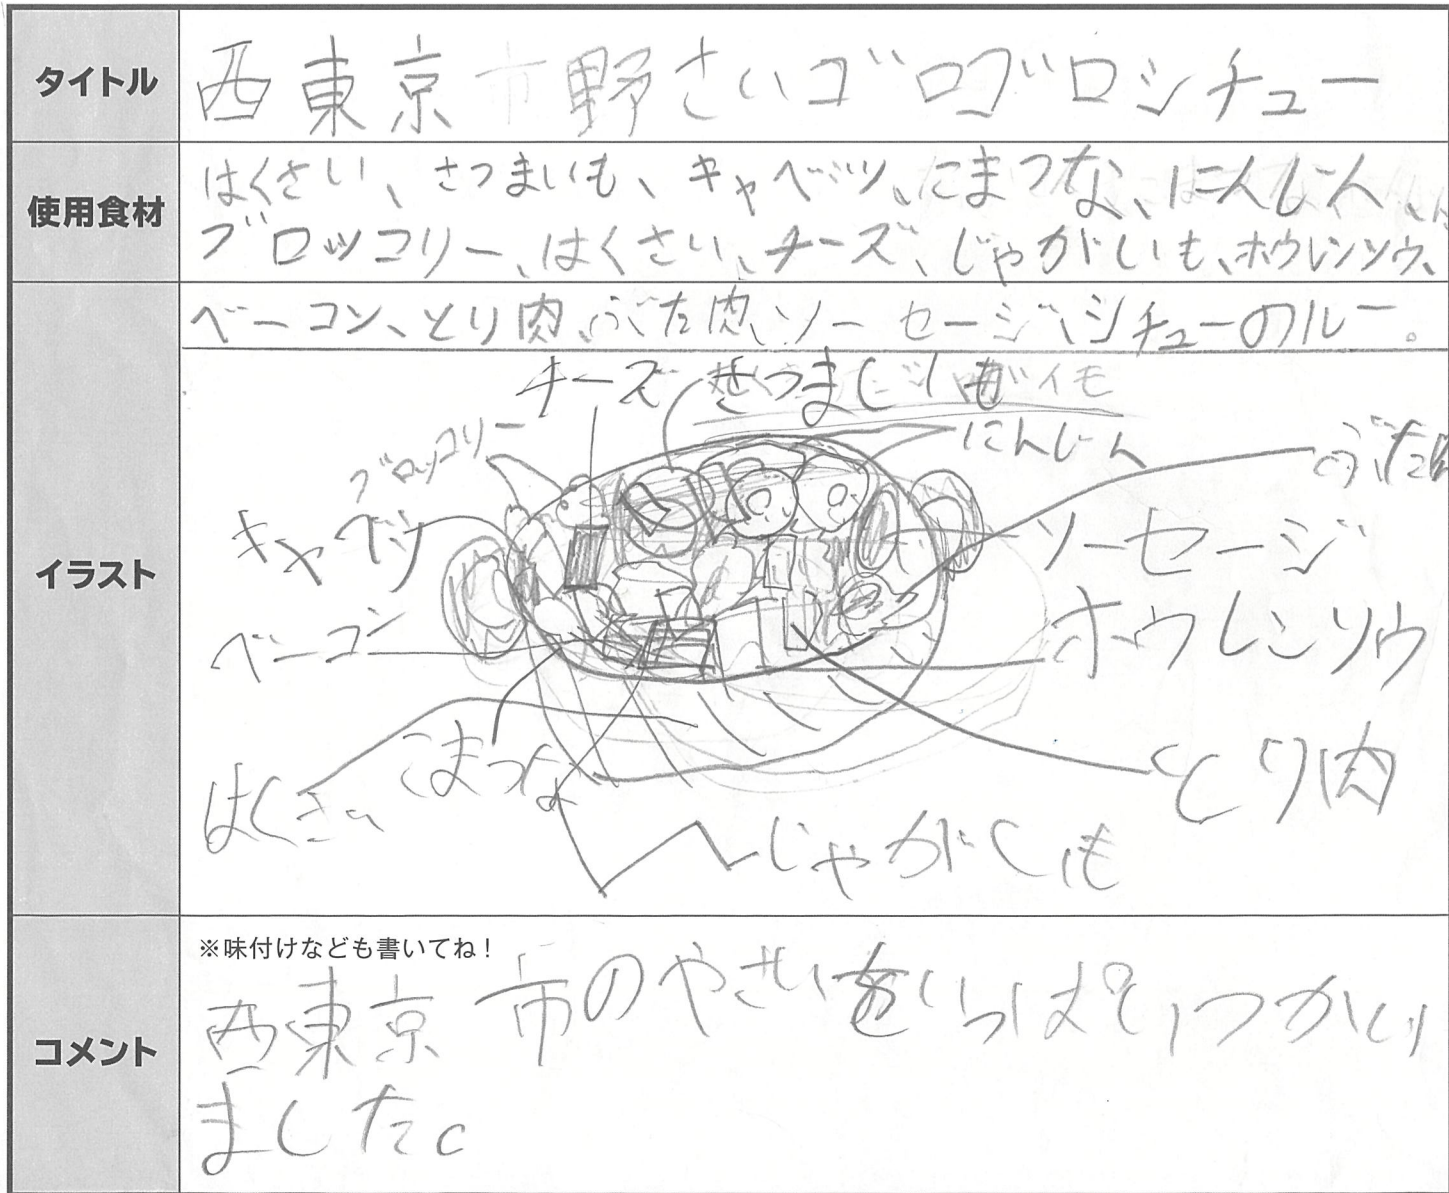 タイトル
西東京市野さいゴロゴロシチュー
使用食材
はくさい、さつまいも、キャベツ、こまつな、にんじん、
ブロッコリー、はくさい、チーズ、じゃがいも、ホウレンソウ、
ベーコン、とり肉、ぶた肉、ソーセージ、シチューのルー。
イラスト
チーズ
さつまいも
ブロッコリー
にんじん
ぶた肉
キャベツ
ソーセージ
ベーコン
ホウレンソウ
はくさい
こまつな
とり肉
じゃがいも
コメント
※味付けなども書いてね!
西東京市のやさいをいっぱいつかい
ました。